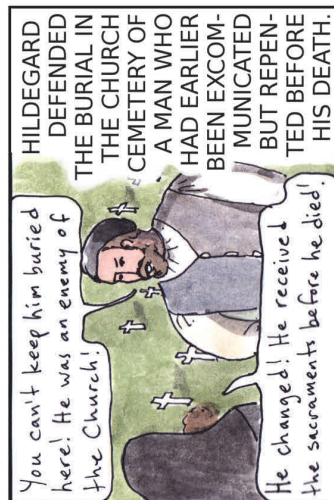 HILDEGARD
DEFENDED
THE BURIAL IN
THE CHURCH
CEMETERY OF
A MAN WHO
HAD EARLIER
BEEN EXCOM-
MUNICATED
BUT REPEN-
TED BEFORE
HIS DEATH.
You can't keep him buried
here! He was an enemy of
the Church!
He changed! He received
the sacraments before he died!